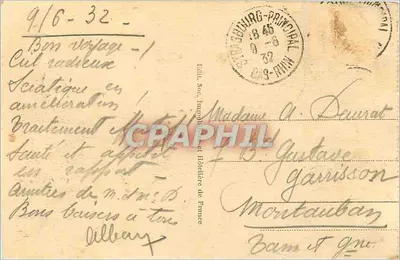 9/6-32-
Bon voyage -!
Ciel radieux!
Sciatique en
amélioration!
Traitement
Santé et appétit
en rapport -
Amitiés de m. et me D
Bons baisers à tous
STRASBOURG-PRINCIPAL
18 45
9-6
32
BAS-RHIN
Edit. Soc. Immobilière et Hôtelière de France
CPARHIL
Madame A. Deurat
B. Gustave
Garrisson
Montauban
Tarn et Gne.